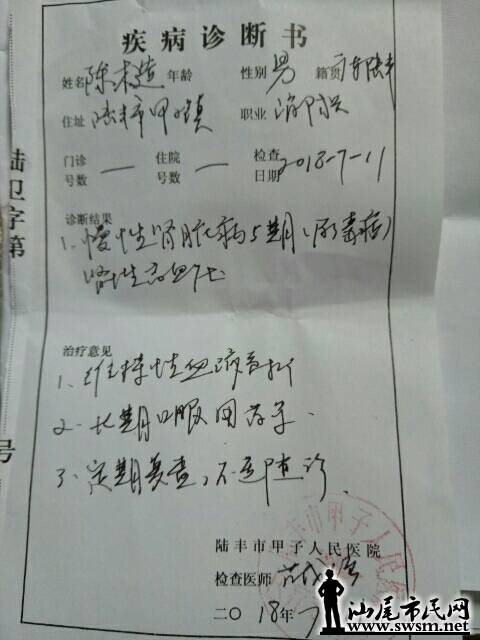 疾病诊断书
姓名 陈木造 年龄 性别 男 籍贯 广东陆丰
住址 陆丰市甲子镇 职业
门诊号数 — 住院号数 — 检查日期 2018-7-11
陆卫字第
号
诊断结果
1、慢性肾脏病5期（尿毒症）
肾性高血压
治疗意见
1、维持性血液透析
2、长期口服用药
3、定期复查，不适随诊
陆丰市甲子人民医院
检查医师
二〇18年7
汕尾市民网
www.swsm.net